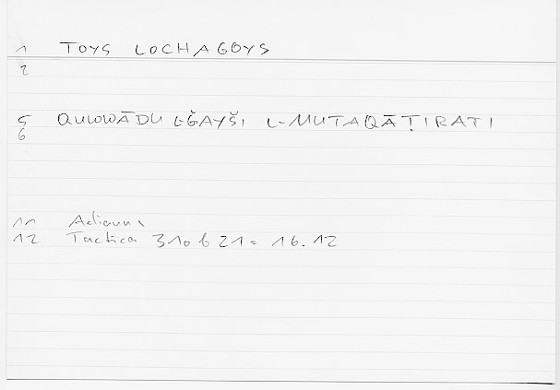 1 TOYS LOCHAGOYS
2
5 QUWWĀDU L-ǦAYŠI L-MUTAQĀṬIRATI
6
11 Aelianus
12 Tactica 310 b 21 = 16.12